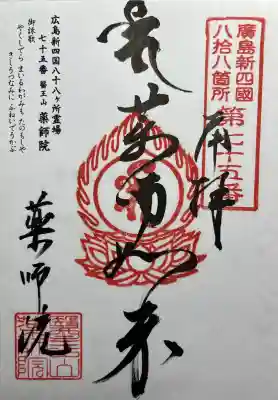 廣島新四國
八拾八箇所
第七十五番
奉拝
薬師如来
薬師院
広島新四国八十八ヶ所霊場
七十五番 醫王山 薬師院
御詠歌
やくしでら まいるわがみも たのもしや
きしうつなみに ふねいでうかぶ